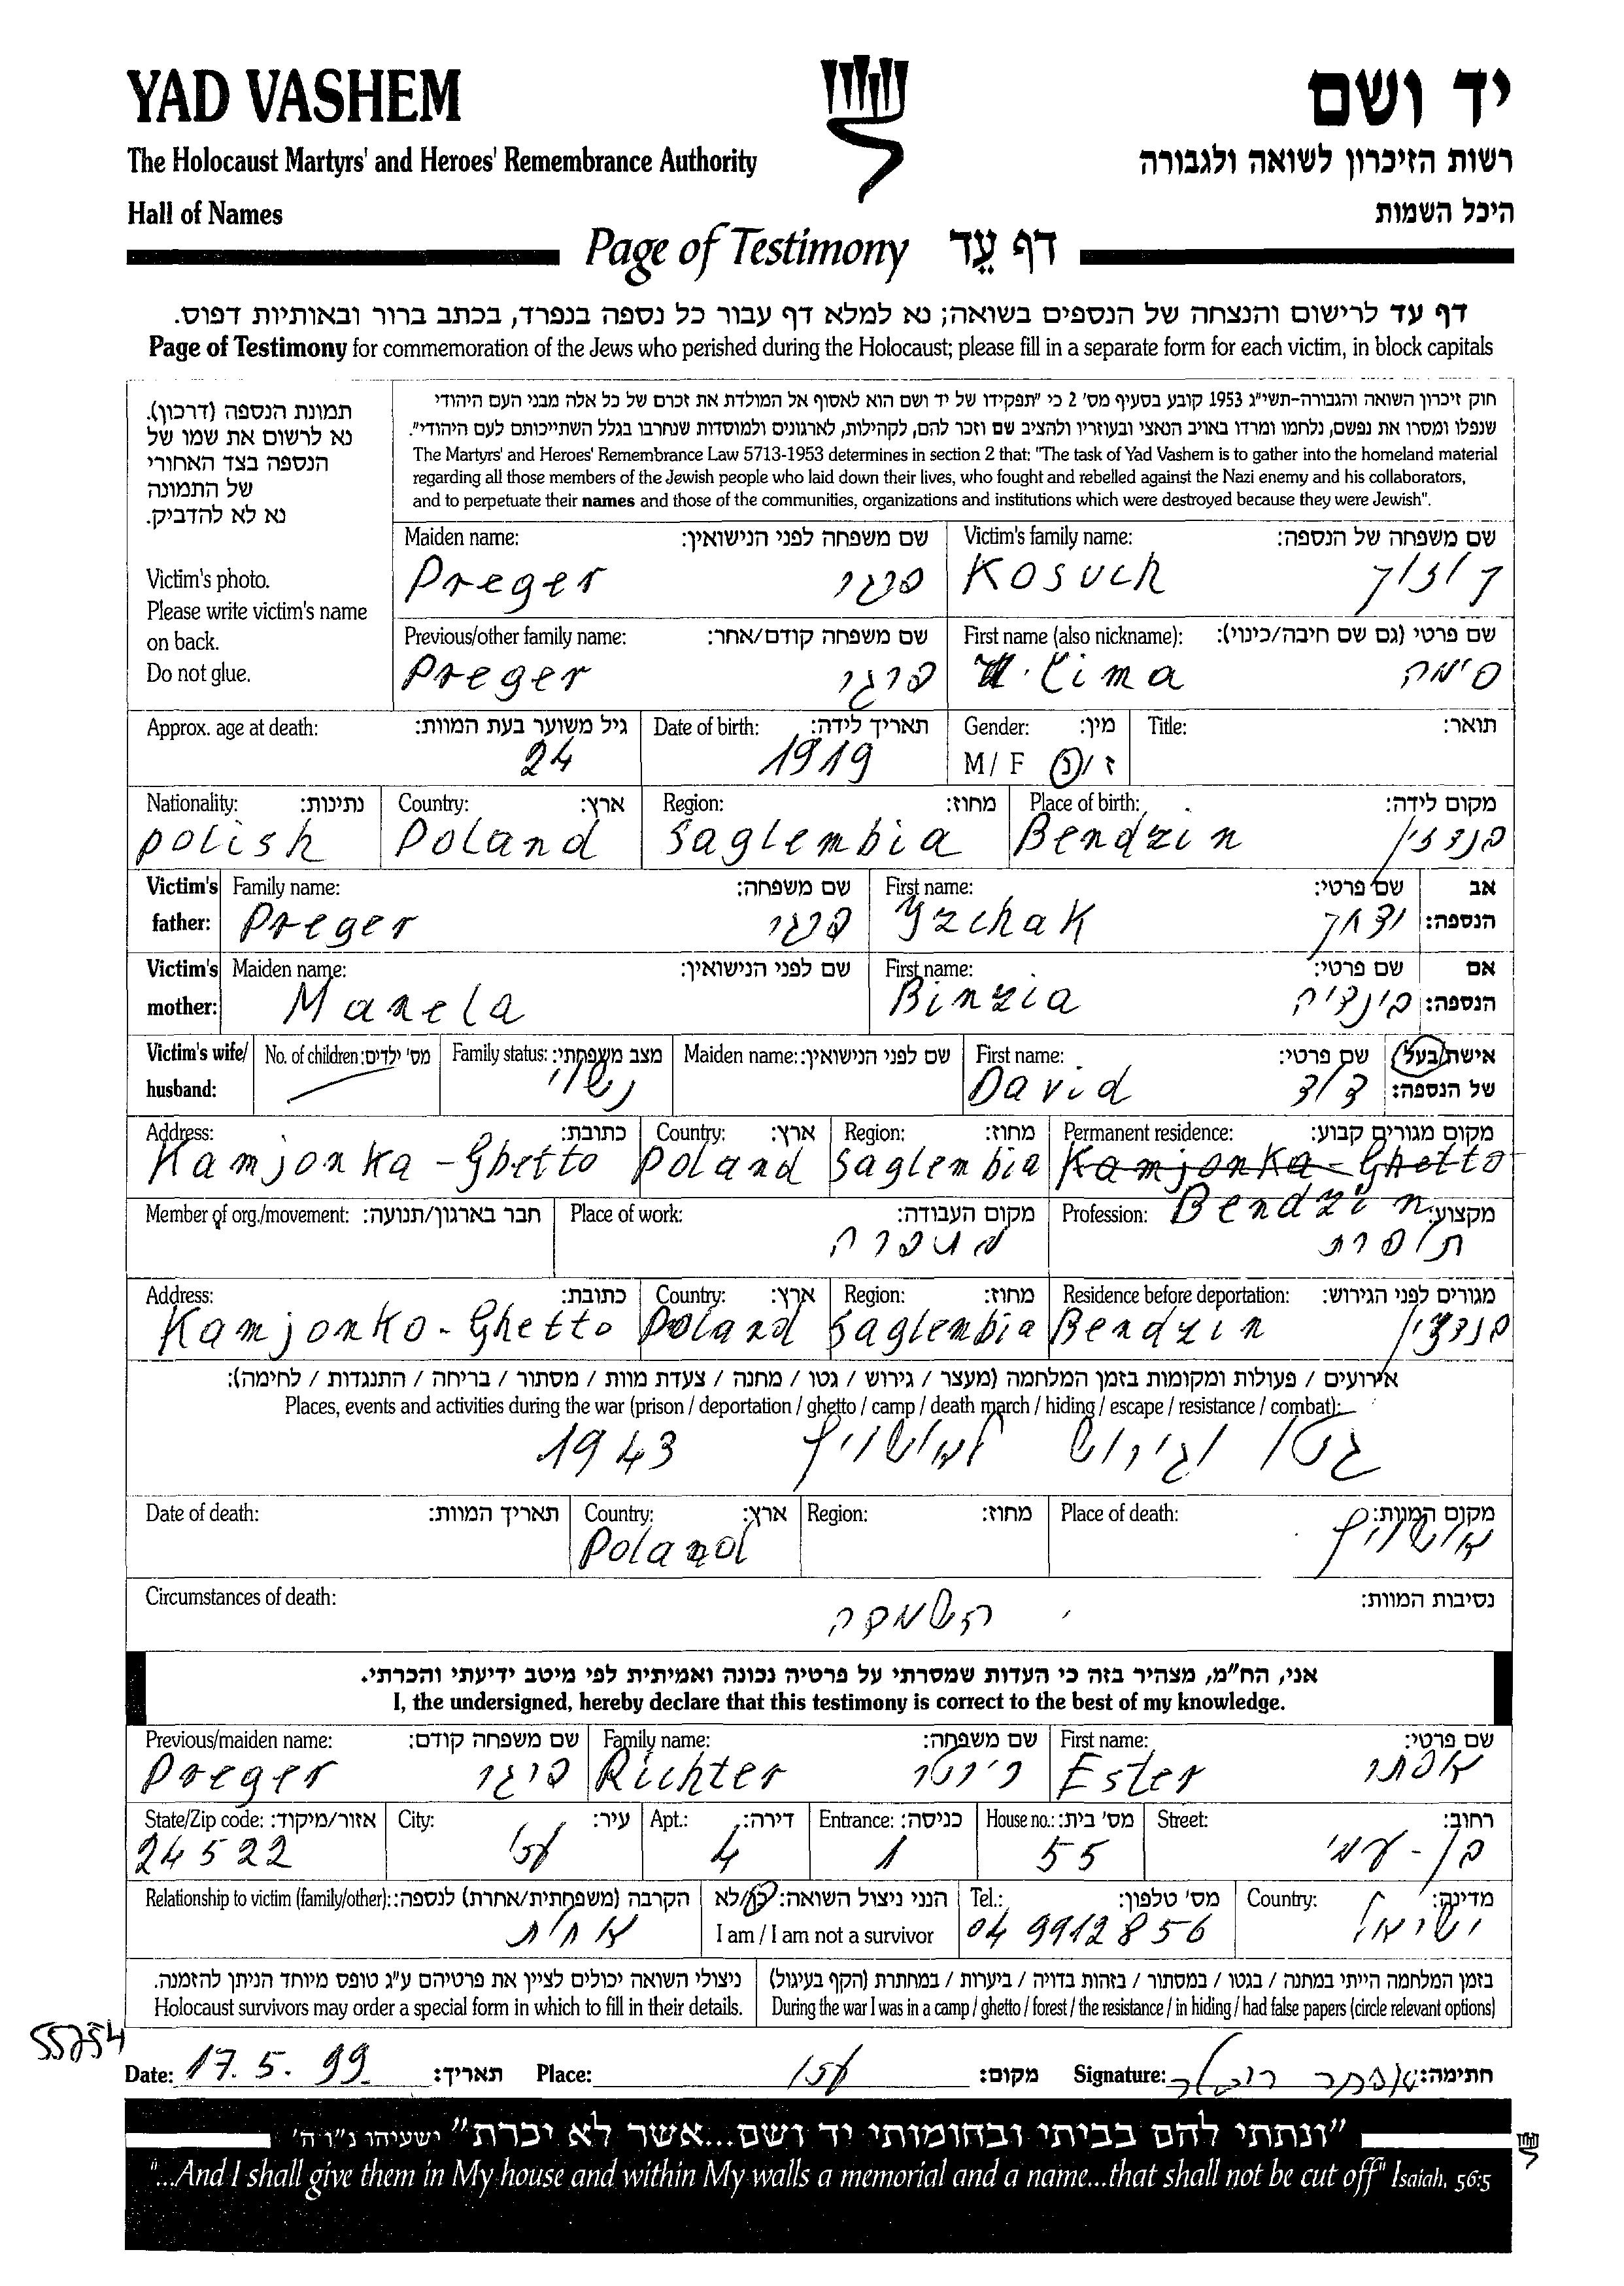 YAD VASHEM
יד ושם
The Holocaust Martyrs' and Heroes' Remembrance Authority
רשות הזיכרון לשואה ולגבורה
Hall of Names
היכל השמות
Page of Testimony דף עֵד
דף עד לרישום והנצחה של הנספים בשואה; נא למלא דף עבור כל נספה בנפרד, בכתב ברור ובאותיות דפוס.
Page of Testimony for commemoration of the Jews who perished during the Holocaust; please fill in a separate form for each victim, in block capitals
תמונת הנספה (דרכון).
נא לרשום את שמו של
הנספה בצד האחורי
של התמונה
נא לא להדביק.
Victim's photo.
Please write victim's name
on back.
Do not glue.
חוק זיכרון השואה והגבורה-תשי"ג 1953 קובע בסעיף מס' 2 כי "תפקידו של יד ושם הוא לאסוף אל המולדת את זכרם של כל אלה מבני העם היהודי
שנפלו ומסרו את נפשם, נלחמו ומרדו באויב הנאצי ובעוזריו ולהציב שם וזכר להם, לקהילות, לארגונים ולמוסדות שנחרבו בגלל השתייכותם לעם היהודי".
The Martyrs' and Heroes' Remembrance Law 5713-1953 determines in section 2 that: "The task of Yad Vashem is to gather into the homeland material
regarding all those members of the Jewish people who laid down their lives, who fought and rebelled against the Nazi enemy and his collaborators,
and to perpetuate their names and those of the communities, organizations and institutions which were destroyed because they were Jewish".
Maiden name: שם משפחה לפני הנישואין: Victim's family name: שם משפחה של הנספה:
Preger פרגר Kosuch קוזוך
Previous/other family name: שם משפחה קודם/אחר: First name (also nickname): שם פרטי (גם שם חיבה/כינוי):
Preger פרגר Cima סימה
Approx. age at death: גיל משוער בעת המוות: Date of birth: תאריך לידה: Gender: מין: Title: תואר:
24 1919 M / F ז / נ
Nationality: נתינות: Country: ארץ: Region: מחוז: Place of birth: מקום לידה:
polish Poland Saglembia Bendzin בנדזין
Victim's father: Family name: שם משפחה: First name: שם פרטי: אב הנספה:
Preger פרגר Yzchak יצחק
Victim's mother: Maiden name: שם לפני הנישואין: First name: שם פרטי: אם הנספה:
Manela Binzia בינציה
Victim's wife/ husband: No. of children: מס' ילדים: Family status: מצב משפחתי: Maiden name: שם לפני הנישואין: First name: שם פרטי: אישת/בעל של הנספה:
נשוי David דוד
Address: כתובת: Country: ארץ: Region: מחוז: Permanent residence: מקום מגורים קבוע:
Kamjonka - Ghetto Poland Saglembia Kamjonka - Ghetto
Bendzin
Member of org./movement: חבר בארגון/תנועה: Place of work: מקום העבודה: Profession: מקצוע:
מתפרה תופרת
Address: כתובת: Country: ארץ: Region: מחוז: Residence before deportation: מגורים לפני הגירוש:
Kamjonko - Ghetto Poland Saglembia Bendzin בנדזין
אירועים / פעולות ומקומות בזמן המלחמה (מעצר / גירוש / גטו / מחנה / צעדת מוות / מסתור / בריחה / התנגדות / לחימה):
Places, events and activities during the war (prison / deportation / ghetto / camp / death march / hiding / escape / resistance / combat):
גטו וגירוש לאושויץ 1943
Date of death: תאריך המוות: Country: ארץ: Region: מחוז: Place of death: מקום המוות:
Poland אושויץ
Circumstances of death: נסיבות המוות:
השמדה
אני, הח"מ, מצהיר בזה כי העדות שמסרתי על פרטיה נכונה ואמיתית לפי מיטב ידיעתי והכרתי.
I, the undersigned, hereby declare that this testimony is correct to the best of my knowledge.
Previous/maiden name: שם משפחה קודם: Family name: שם משפחה: First name: שם פרטי:
Preger פרגר Richter ריכטר Ester אסתר
State/Zip code: אזור/מיקוד: City: עיר: Apt.: דירה: Entrance: כניסה: House no.: מס' בית: Street: רחוב:
24522 עכו 4 1 55 בן - עמי
Relationship to victim (family/other): הקרבה (משפחתית/אחרת) לנספה: הנני ניצול השואה: כן/לא Tel.: מס' טלפון: Country: מדינה:
אחות I am / I am not a survivor 04 9912856 ישראל
ניצולי השואה יכולים לציין את פרטיהם ע"ג טופס מיוחד הניתן להזמנה. בזמן המלחמה הייתי במחנה / בגטו / במסתור / בזהות בדויה / ביערות / במחתרת (הקף בעיגול)
Holocaust survivors may order a special form in which to fill in their details. During the war I was in a camp / ghetto / forest / the resistance / in hiding / had false papers (circle relevant options)
Date: 17.5.99 תאריך: Place: עכו מקום: Signature: אסתר ריכטר חתימה:
"ונתתי להם בביתי ובחומותי יד ושם...אשר לא יכרת" ישעיהו נ"ו ה'
"...And I shall give them in My house and within My walls a memorial and a name...that shall not be cut off" Isaiah, 56:5